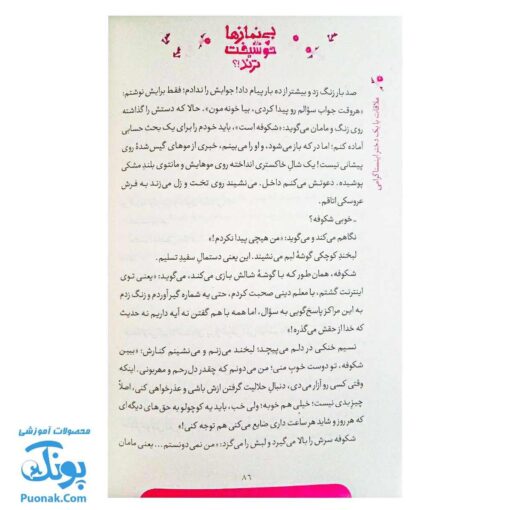 بی‌نمازها
خوشبخت
ترند!؟
ملاقات با یک دختر اینستاگرامی
صد بار زنگ زد و بیشتر از ده بار پیام داد! جوابش را ندادم؛ فقط برایش نوشتم:
«هروقت جواب سؤالم رو پیدا کردی، بیا خونه‌مون». حالا که دستش را گذاشته
روی زنگ و مامان می‌گوید: «شکوفه است»، باید خودم را برای یک بحث حسابی
آماده کنم؛ اما در که باز می‌شود، و او را می‌بینم، خبری از موهای گیس شدهٔ روی
پیشانی نیست! یک شالِ خاکستری انداخته روی موهایش و مانتوی بلندِ مشکی
پوشیده. دعوتش می‌کنم داخل. می‌نشیند روی تخت و زل می‌زند به فرش
عروسکی اتاقم.
ـ خوبی شکوفه؟
نگاهم می‌کند و می‌گوید: «من هیچی پیدا نکردم!»
لبخندِ کوچکی گوشهٔ لبم می‌نشیند. این یعنی دستمال سفیدِ تسلیم.
شکوفه، همان‌طور که با گوشهٔ شالش بازی می‌کند، می‌گوید: «یعنی توی
اینترنت گشتم، با معلم دینی صحبت کردم، حتی یه شماره گیر آوردم و زنگ زدم
به این مراکز پاسخ‌گویی به سؤال، اما همه با هم گفتن نه آیه داریم نه حدیث
که خدا از حقش می‌گذره!»
نسیم خنکی در دلم می‌پیچد؛ لبخند می‌زنم و می‌نشینم کنارش: «ببین
شکوفه، تو دوست خوبِ منی؛ من می‌دونم که چقدر دل‌رحم و مهربونی. اینکه
وقتی کسی رو آزار می‌دی، دنبالِ حلالیت گرفتن ازش باشی و عذرخواهی کنی، اصلاً
چیز بدی نیست؛ خیلی هم خوبه! ولی خب، باید یه کوچولو به حق‌های دیگه‌ای
که هر روز و شاید هر ساعت داری ضایع می‌کنی هم توجه کنی!»
شکوفه سرش را بالا می‌گیرد و لبش را می‌گزد: «من نمی‌دونستم... یعنی مامان
۸۶
محصولات آموزشی
پونک
Puonak.Com